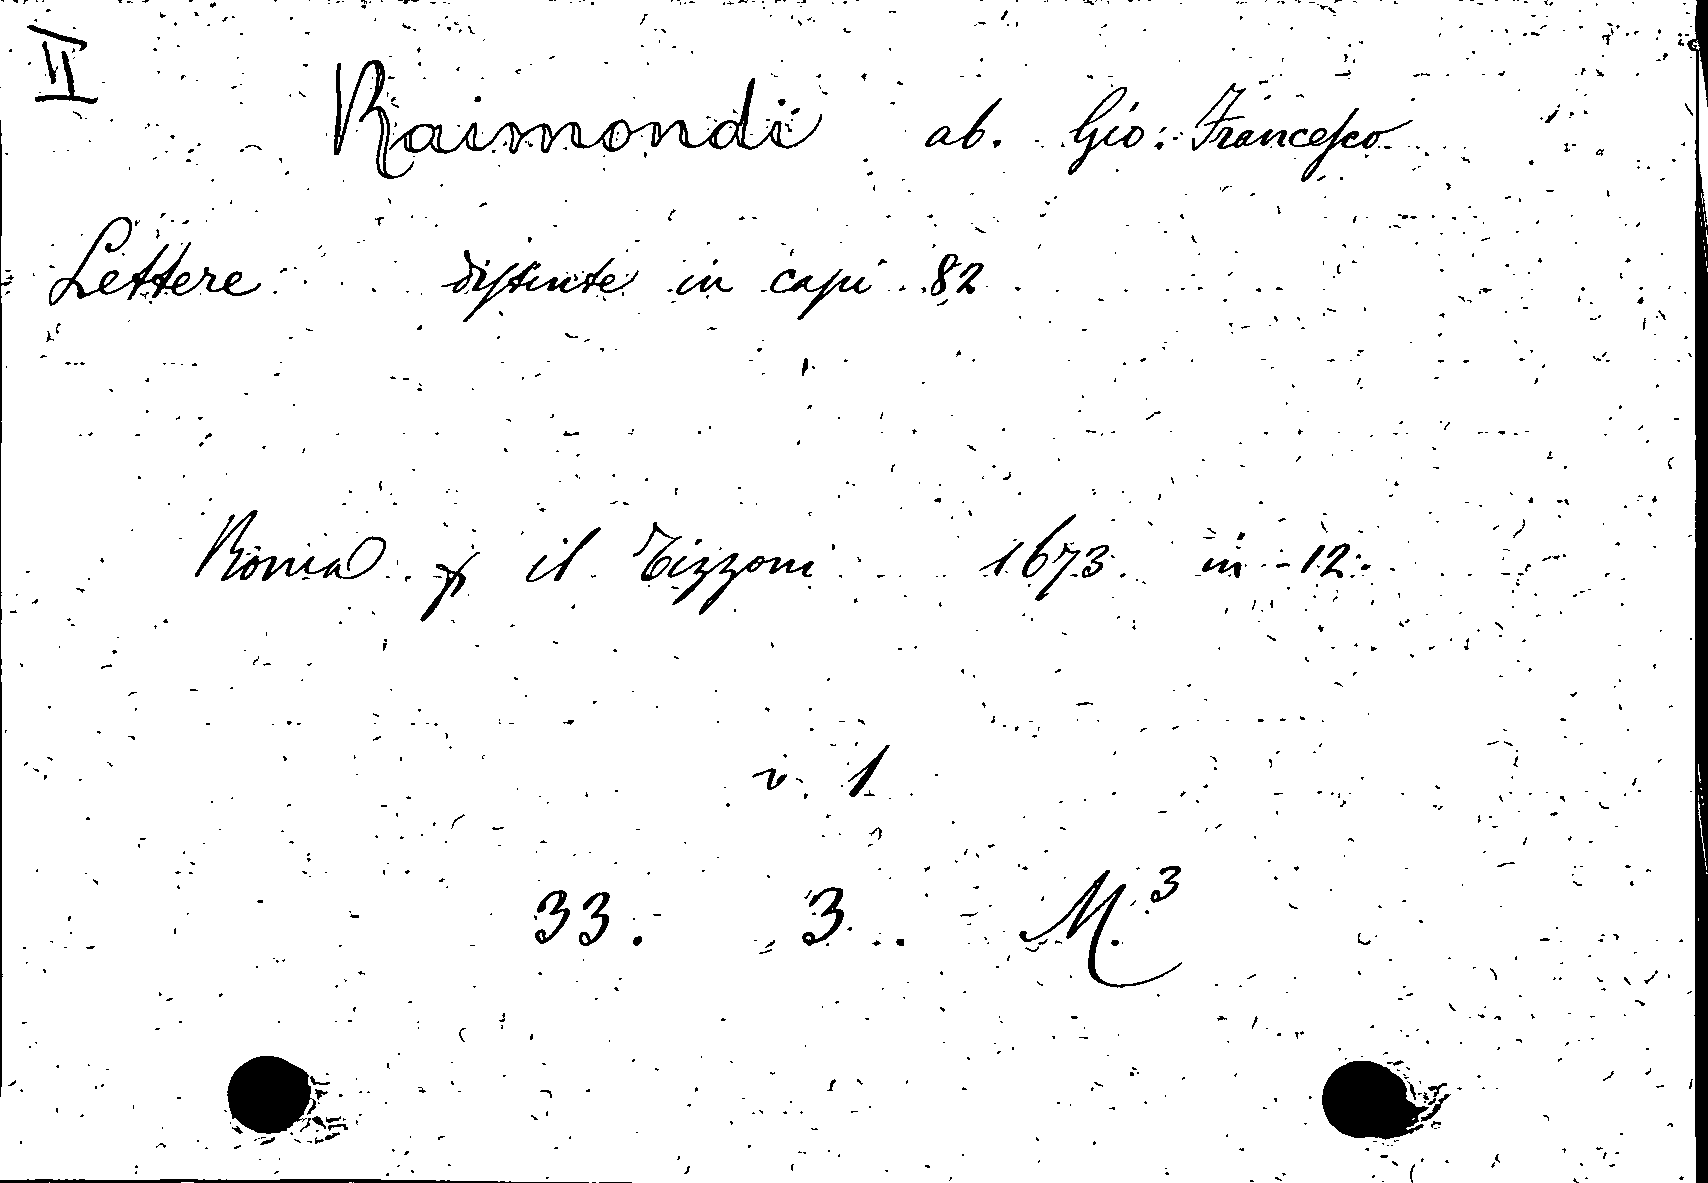 II
Raimondi ab. Gio: Francesco
Lettere distinte in capi 82
Roma p il Tizzoni 1673 in 12.
v. 1
33. 3. M.3